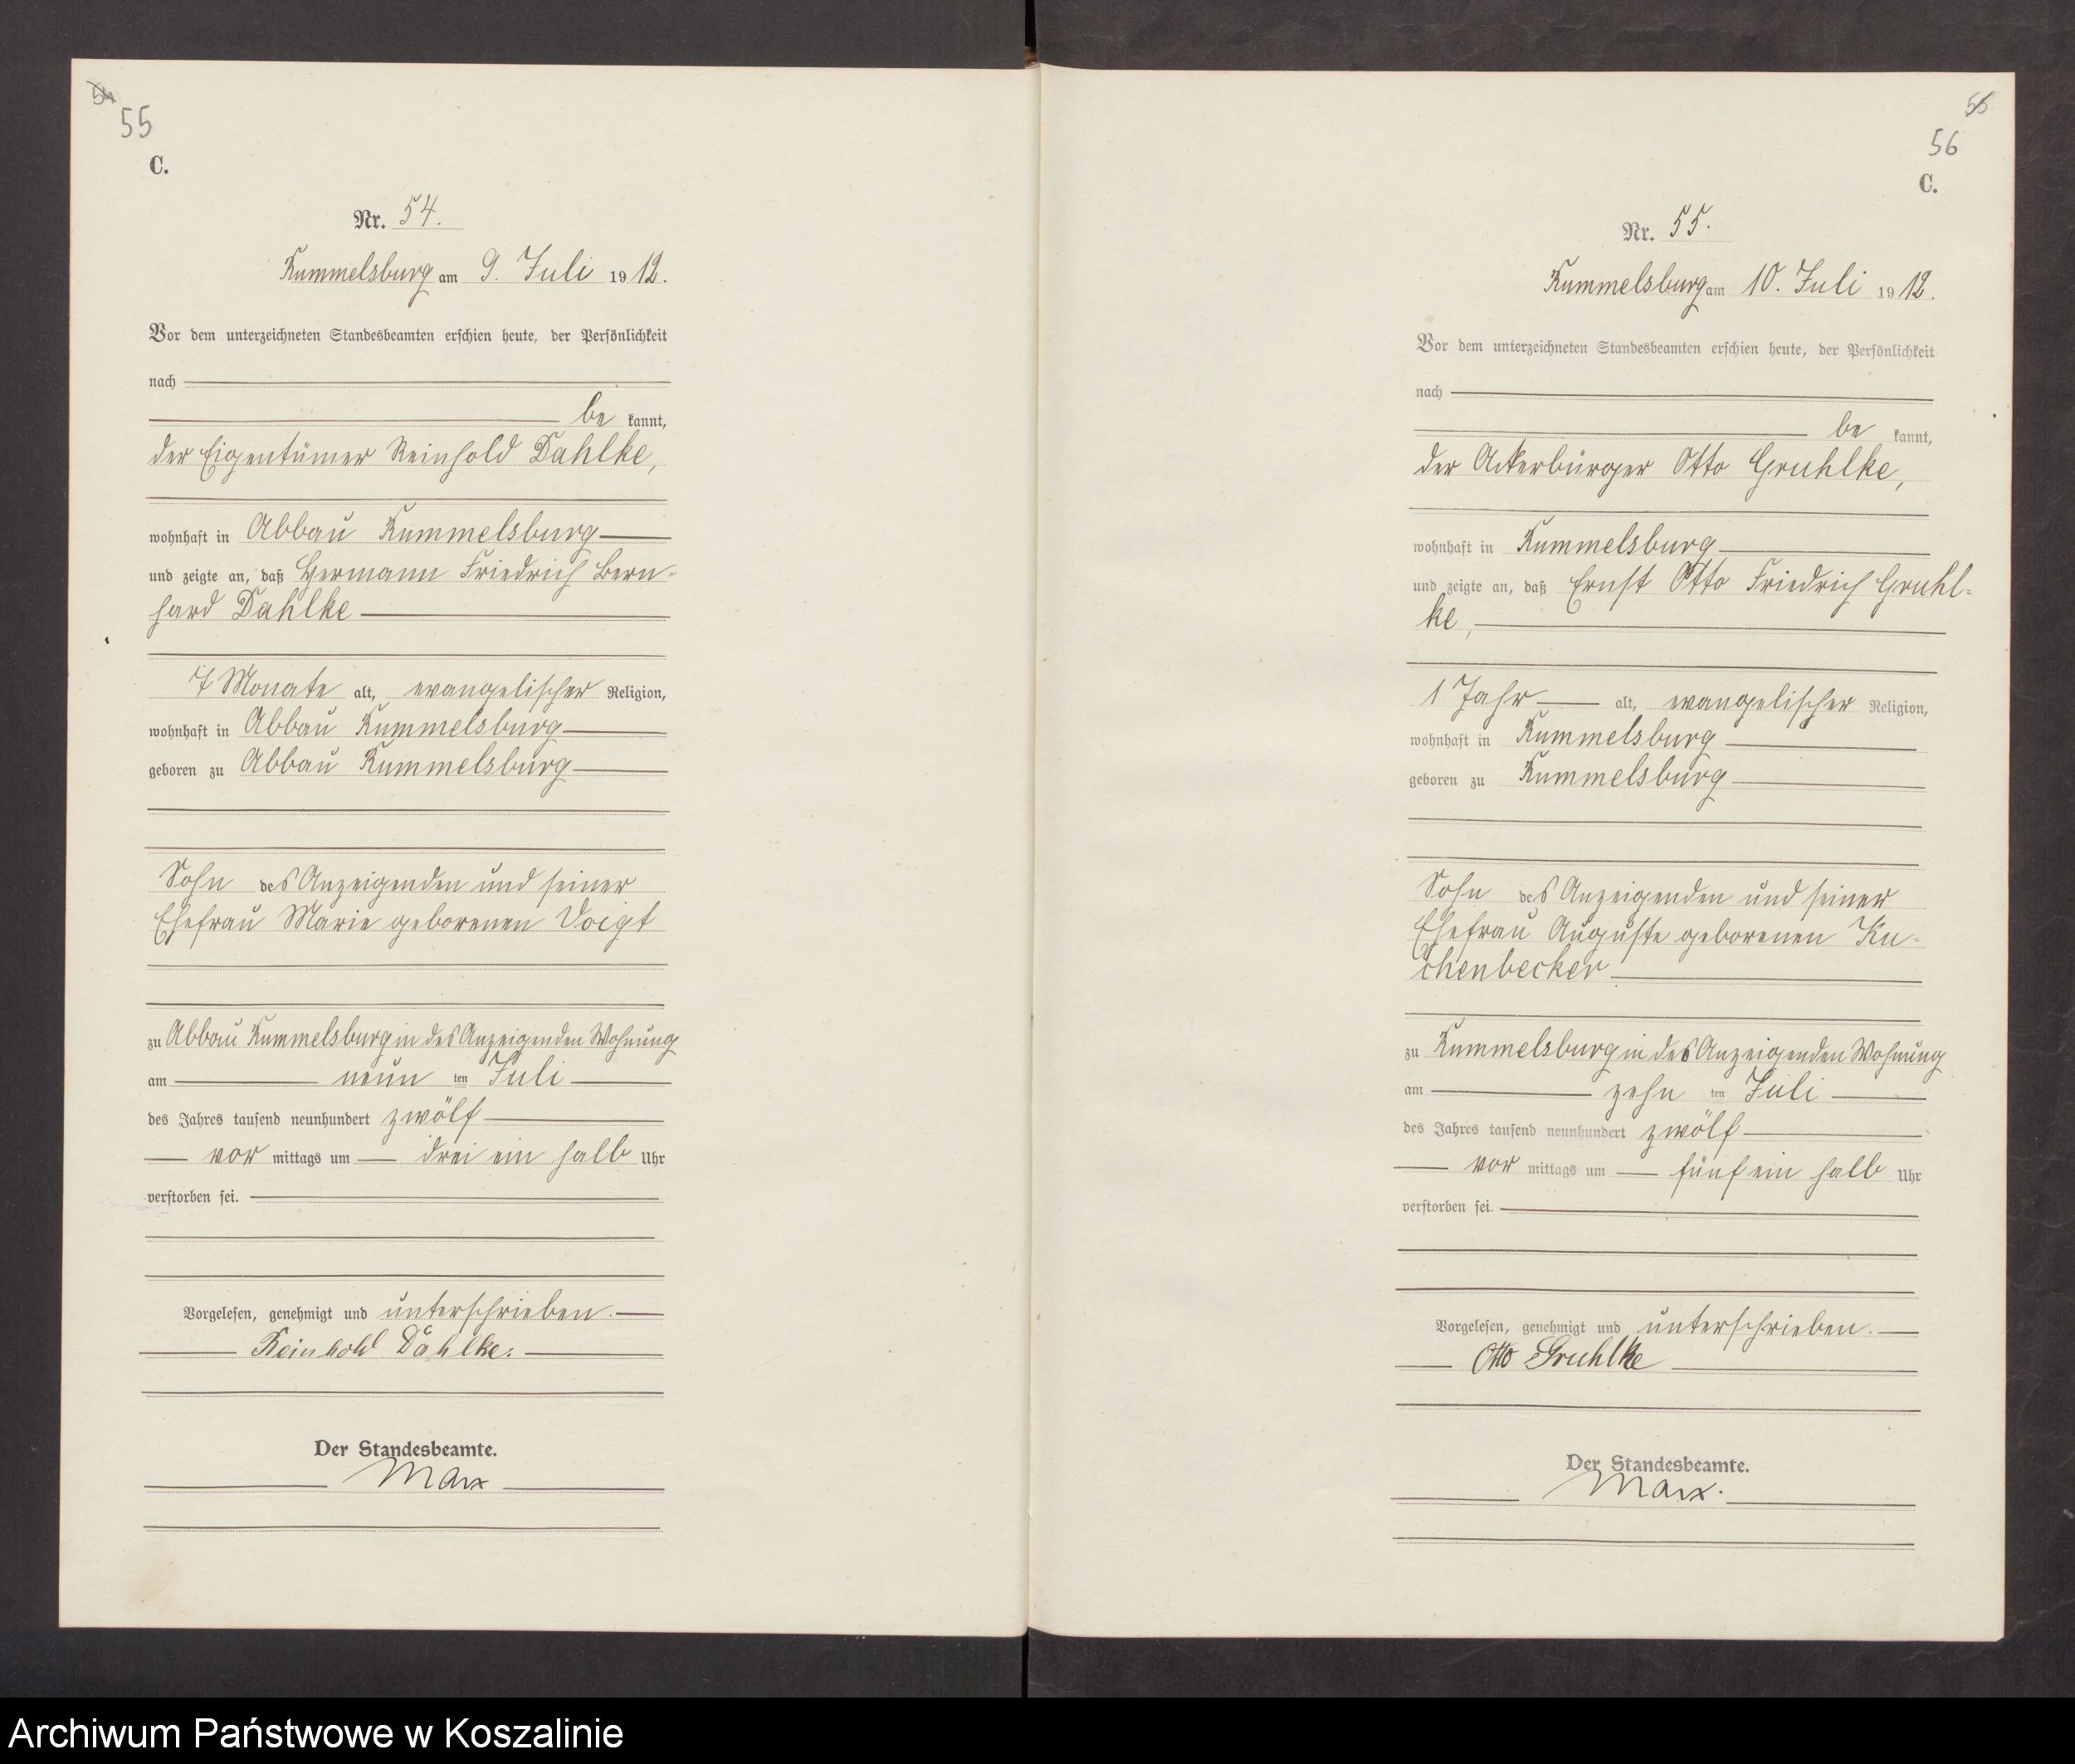 54
55
C.
Nr. 54.
Rummelsburg am 9. Juli 1912.
Vor dem unterzeichneten Standesbeamten erschien heute, der Persönlichkeit
nach
be kannt,
der Eigentümer Reinhold Dahlke,
wohnhaft in Abbau Rummelsburg
und zeigte an, daß Hermann Friedrich Bern-
hard Dahlke
7 Monate alt, evangelischer Religion,
wohnhaft in Abbau Rummelsburg
geboren zu Abbau Rummelsburg
Sohn des Anzeigenden und seiner
Ehefrau Marie geborenen Voigt
zu Abbau Rummelsburg in des Anzeigenden Wohnung
am neun ten Juli
des Jahres tausend neunhundert zwölf
vor mittags um drei ein halb Uhr
verstorben sei.
Vorgelesen, genehmigt und unterschrieben.
Reinhold Dahlke.
Der Standesbeamte.
Marx
55
56
C.
Nr. 55.
Rummelsburg am 10. Juli 1912.
Vor dem unterzeichneten Standesbeamten erschien heute, der Persönlichkeit
nach
be kannt,
der Ackerbürger Otto Gruhlke,
wohnhaft in Rummelsburg
und zeigte an, daß Ernst Otto Friedrich Gruhl-
ke,
1 Jahr alt, evangelischer Religion,
wohnhaft in Rummelsburg
geboren zu Rummelsburg
Sohn des Anzeigenden und seiner
Ehefrau Auguste geborenen Ku-
chenbecker
zu Rummelsburg in des Anzeigenden Wohnung
am zehn ten Juli
des Jahres tausend neunhundert zwölf
vor mittags um fünf ein halb Uhr
verstorben sei.
Vorgelesen, genehmigt und unterschrieben.
Otto Gruhlke
Der Standesbeamte.
Marx.
Archiwum Państwowe w Koszalinie